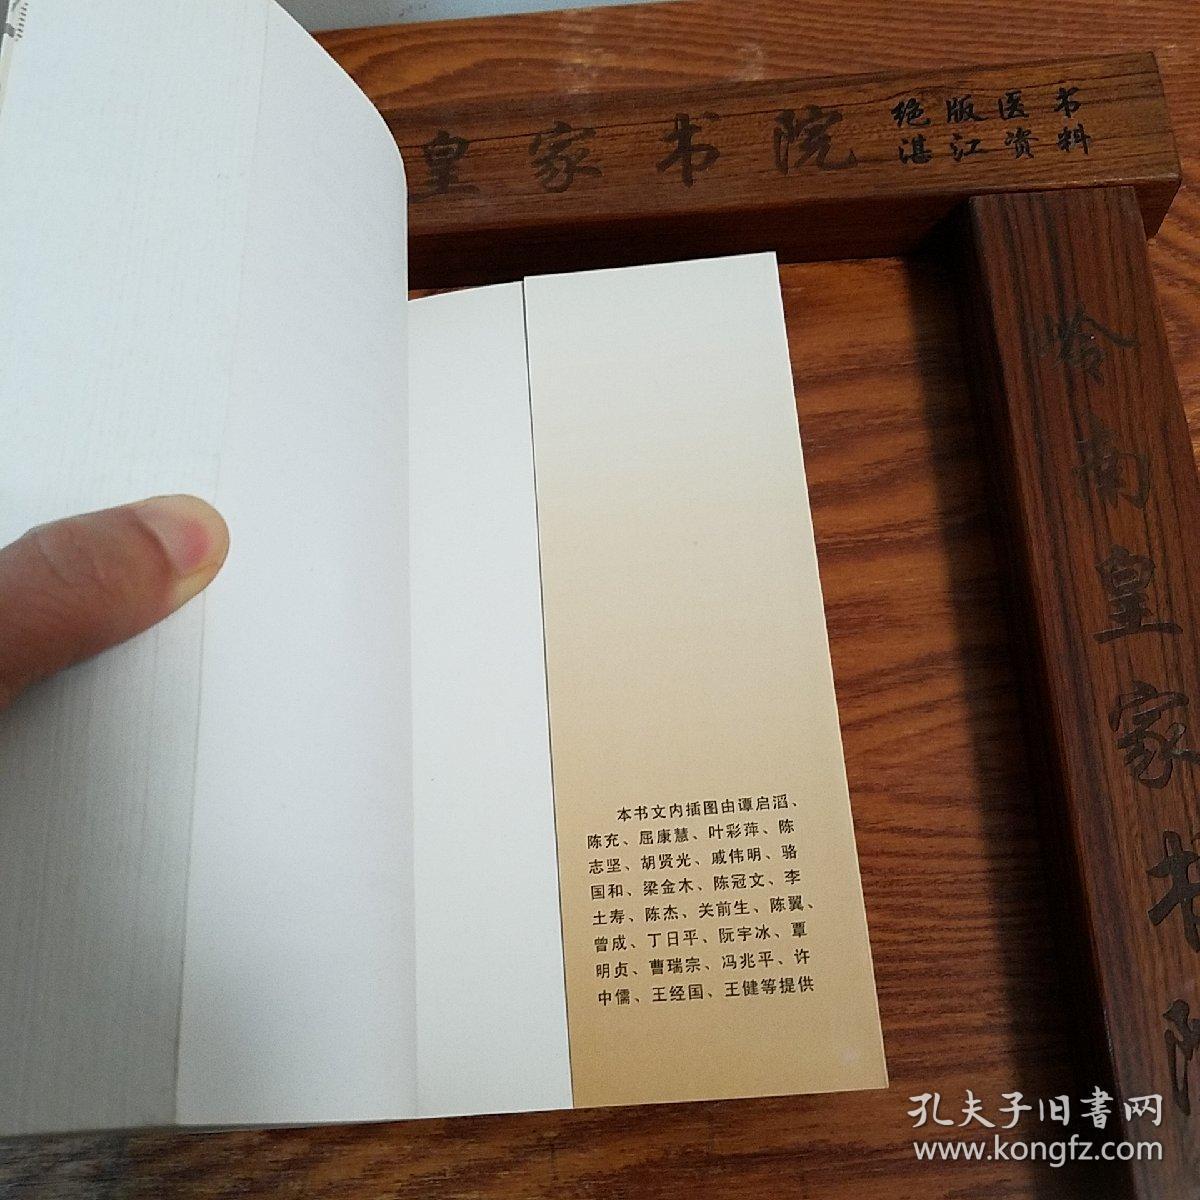 皇家书院
绝版医书
湛江资料
岭南皇家书院
本书文内插图由谭启滔、
陈充、屈康慧、叶彩萍、陈
志坚、胡贤光、戚伟明、骆
国和、梁金木、陈冠文、李
土寿、陈杰、关前生、陈翼、
曾成、丁日平、阮宇冰、覃
明贞、曹瑞宗、冯兆平、许
中儒、王经国、王健等提供
孔夫子旧書网
www.kongfz.com